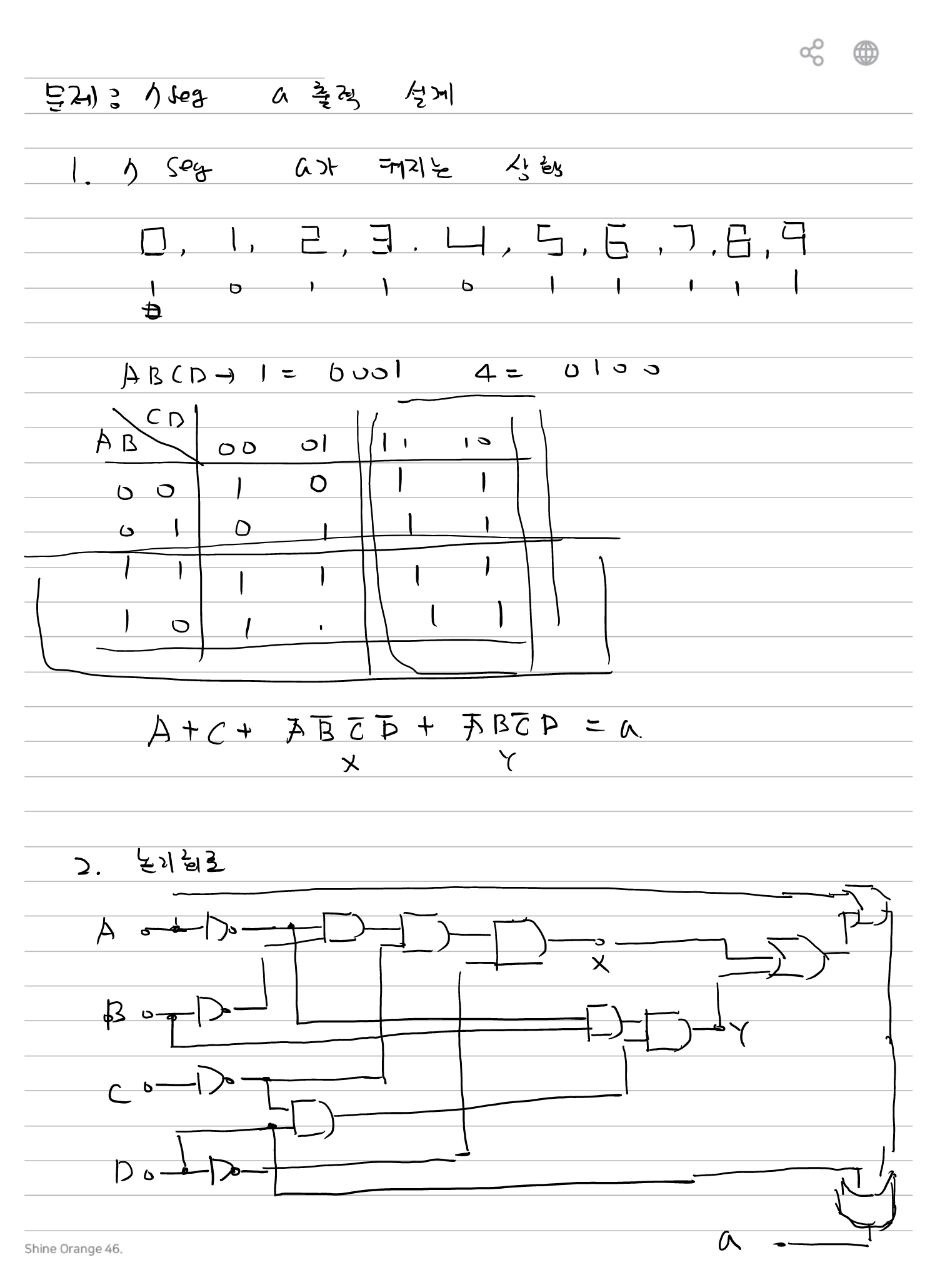 문제 : 7 seg a 출력 설계
1. 7 seg a가 켜지는 상황
0, 1, 2, 3. 4, 5, 6, 7, 8, 9
1 0 1 1 0 1 1 1 1 1
0
ABCD → 1 = 0001 4 = 0100
CD
AB 00 01 11 10
0 0 1 0 1 1
0 1 0 1 1 1
1 1 1 1 1 1
1 0 1 . 1 1
A + C + A̅ B̅ C̅ D̅ + A̅ B C̅ D = a.
X Y
2. 논리회로
A
X
B
Y
C
D
a
Shine Orange 46.